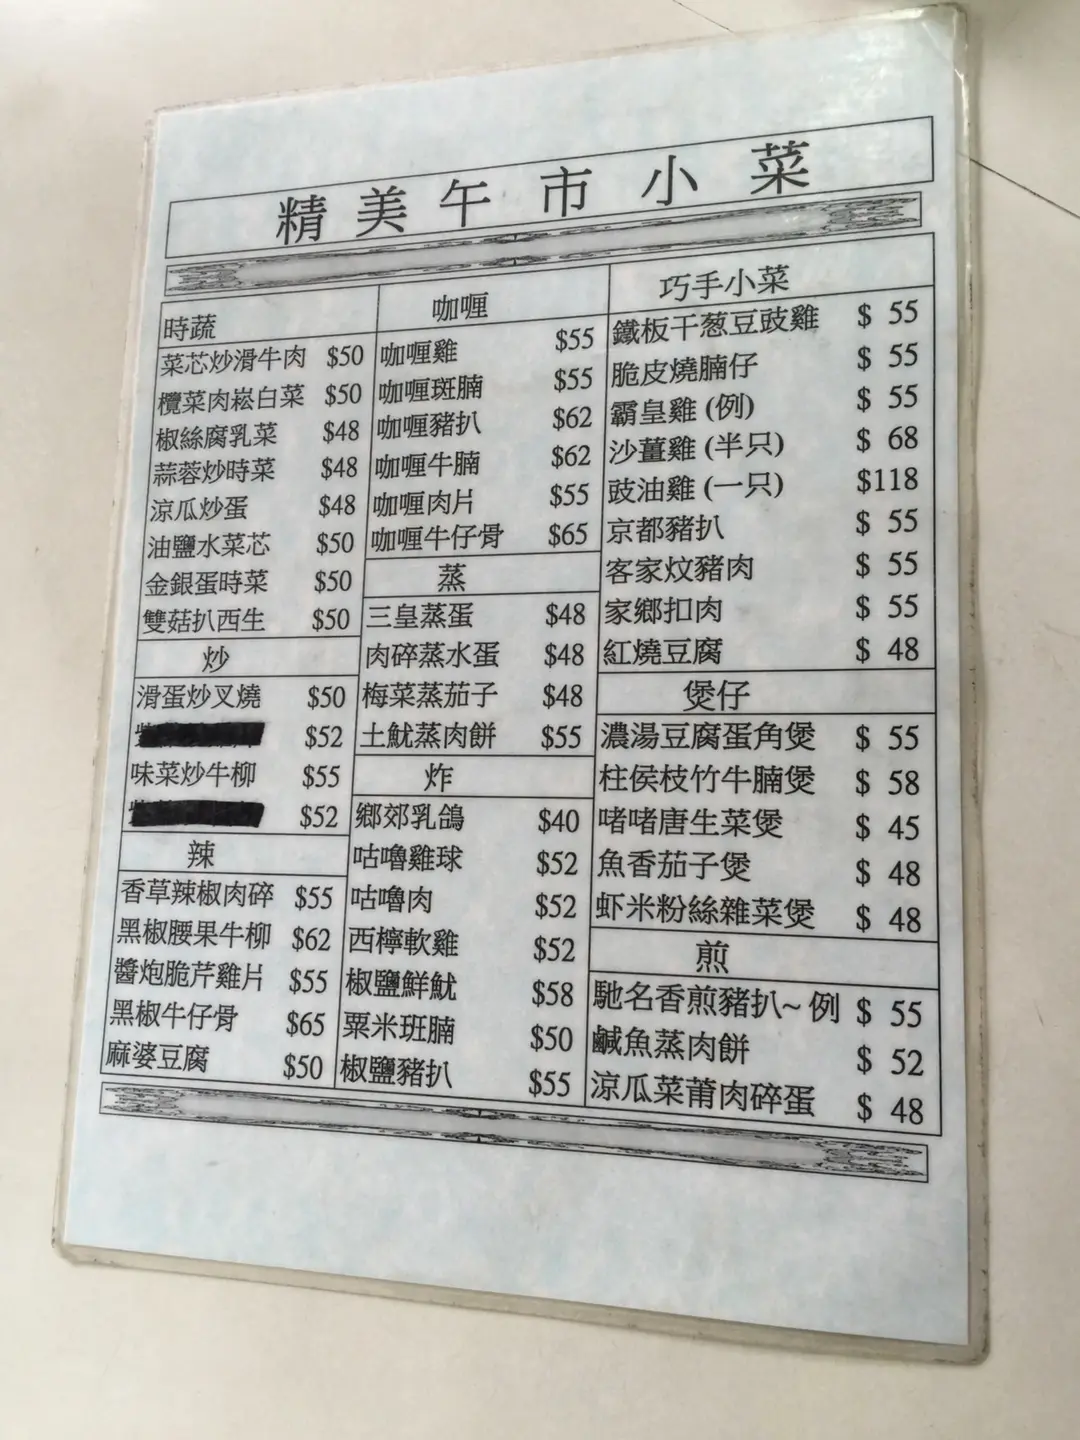 精美午市小菜
時蔬
菜芯炒滑牛肉 $50
欖菜肉崧白菜 $50
椒絲腐乳菜 $48
蒜蓉炒時菜 $48
涼瓜炒蛋 $48
油鹽水菜芯 $50
金銀蛋時菜 $50
雙菇扒西生 $50
炒
滑蛋炒叉燒 $50
$52
味菜炒牛柳 $55
$52
辣
香草辣椒肉碎 $55
黑椒腰果牛柳 $62
醬炮脆芹雞片 $55
黑椒牛仔骨 $65
麻婆豆腐 $50
咖喱
咖喱雞 $55
咖喱斑腩 $55
咖喱豬扒 $62
咖喱牛腩 $62
咖喱肉片 $55
咖喱牛仔骨 $65
蒸
三皇蒸蛋 $48
肉碎蒸水蛋 $48
梅菜蒸茄子 $48
土魷蒸肉餅 $55
炸
鄉郊乳鴿 $40
咕嚕雞球 $52
咕嚕肉 $52
西檸軟雞 $52
椒鹽鮮魷 $58
粟米班腩 $50
椒鹽豬扒 $55
巧手小菜
鐵板干葱豆豉雞 $ 55
脆皮燒腩仔 $ 55
霸皇雞 (例) $ 55
沙薑雞 (半只) $ 68
豉油雞 (一只) $118
京都豬扒 $ 55
客家炆豬肉 $ 55
家鄉扣肉 $ 55
紅燒豆腐 $ 48
煲仔
濃湯豆腐蛋角煲 $ 55
柱侯枝竹牛腩煲 $ 58
啫啫唐生菜煲 $ 45
魚香茄子煲 $ 48
虾米粉絲雜菜煲 $ 48
煎
馳名香煎豬扒~ 例 $ 55
鹹魚蒸肉餅 $ 52
涼瓜菜莆肉碎蛋 $ 48